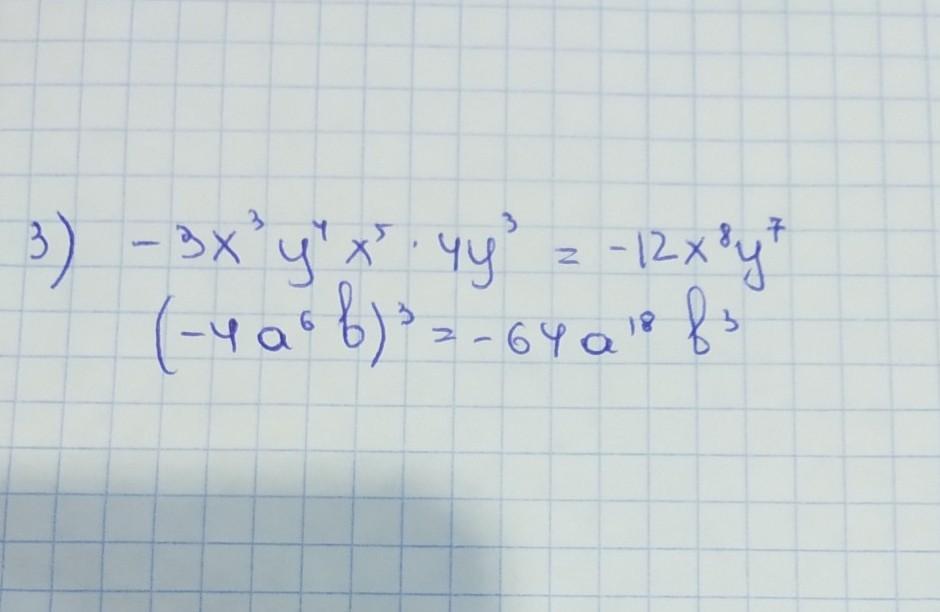 3) -3x³y⁴x⁵ · 4y³ = -12x⁸y⁷
(-4a⁶b)³ = -64a¹⁸b³